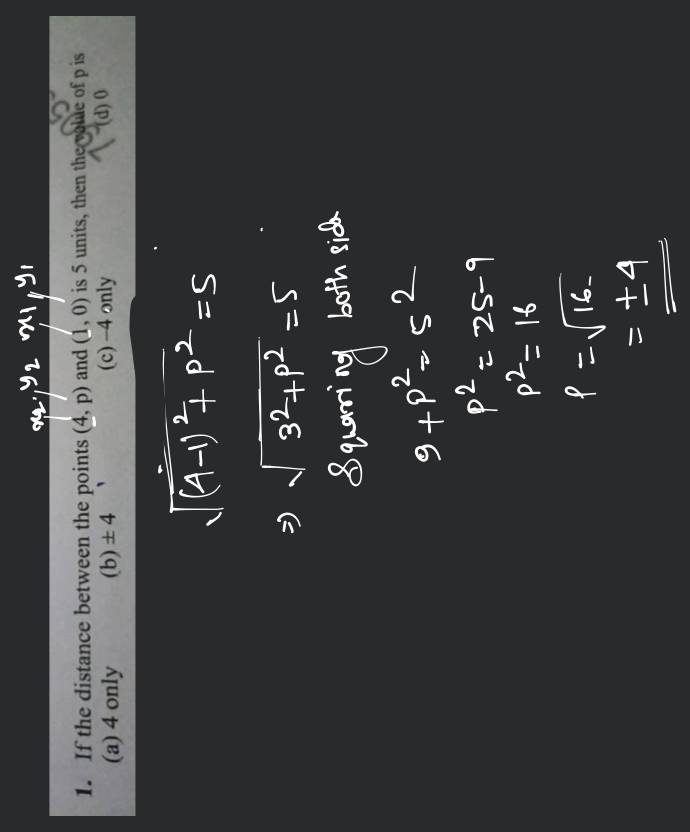 x₂, y₂ x₁, y₁
1. If the distance between the points (4, p) and (1, 0) is 5 units, then the value of p is
(a) 4 only (b) ± 4 (c) –4 only (d) 0
√(4-1)² + p² = 5
⇒ √3² + p² = 5
Squaring both side
9 + p² = 5²
p² = 25-9
p² = 16
p = √16
= ± 4